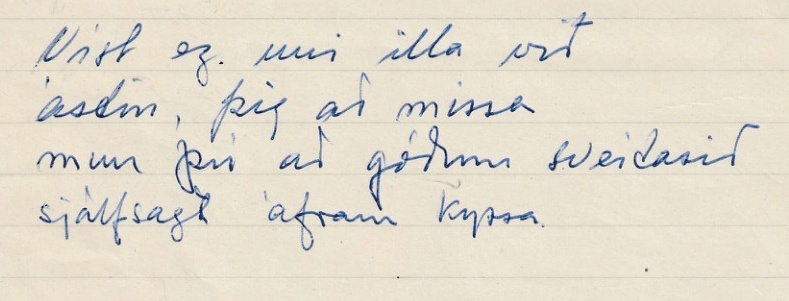 Víst ég uni illa við
ástin, þig að missa
mun þú að góðum sveitasið
sjálfsagt áfram kyssa.